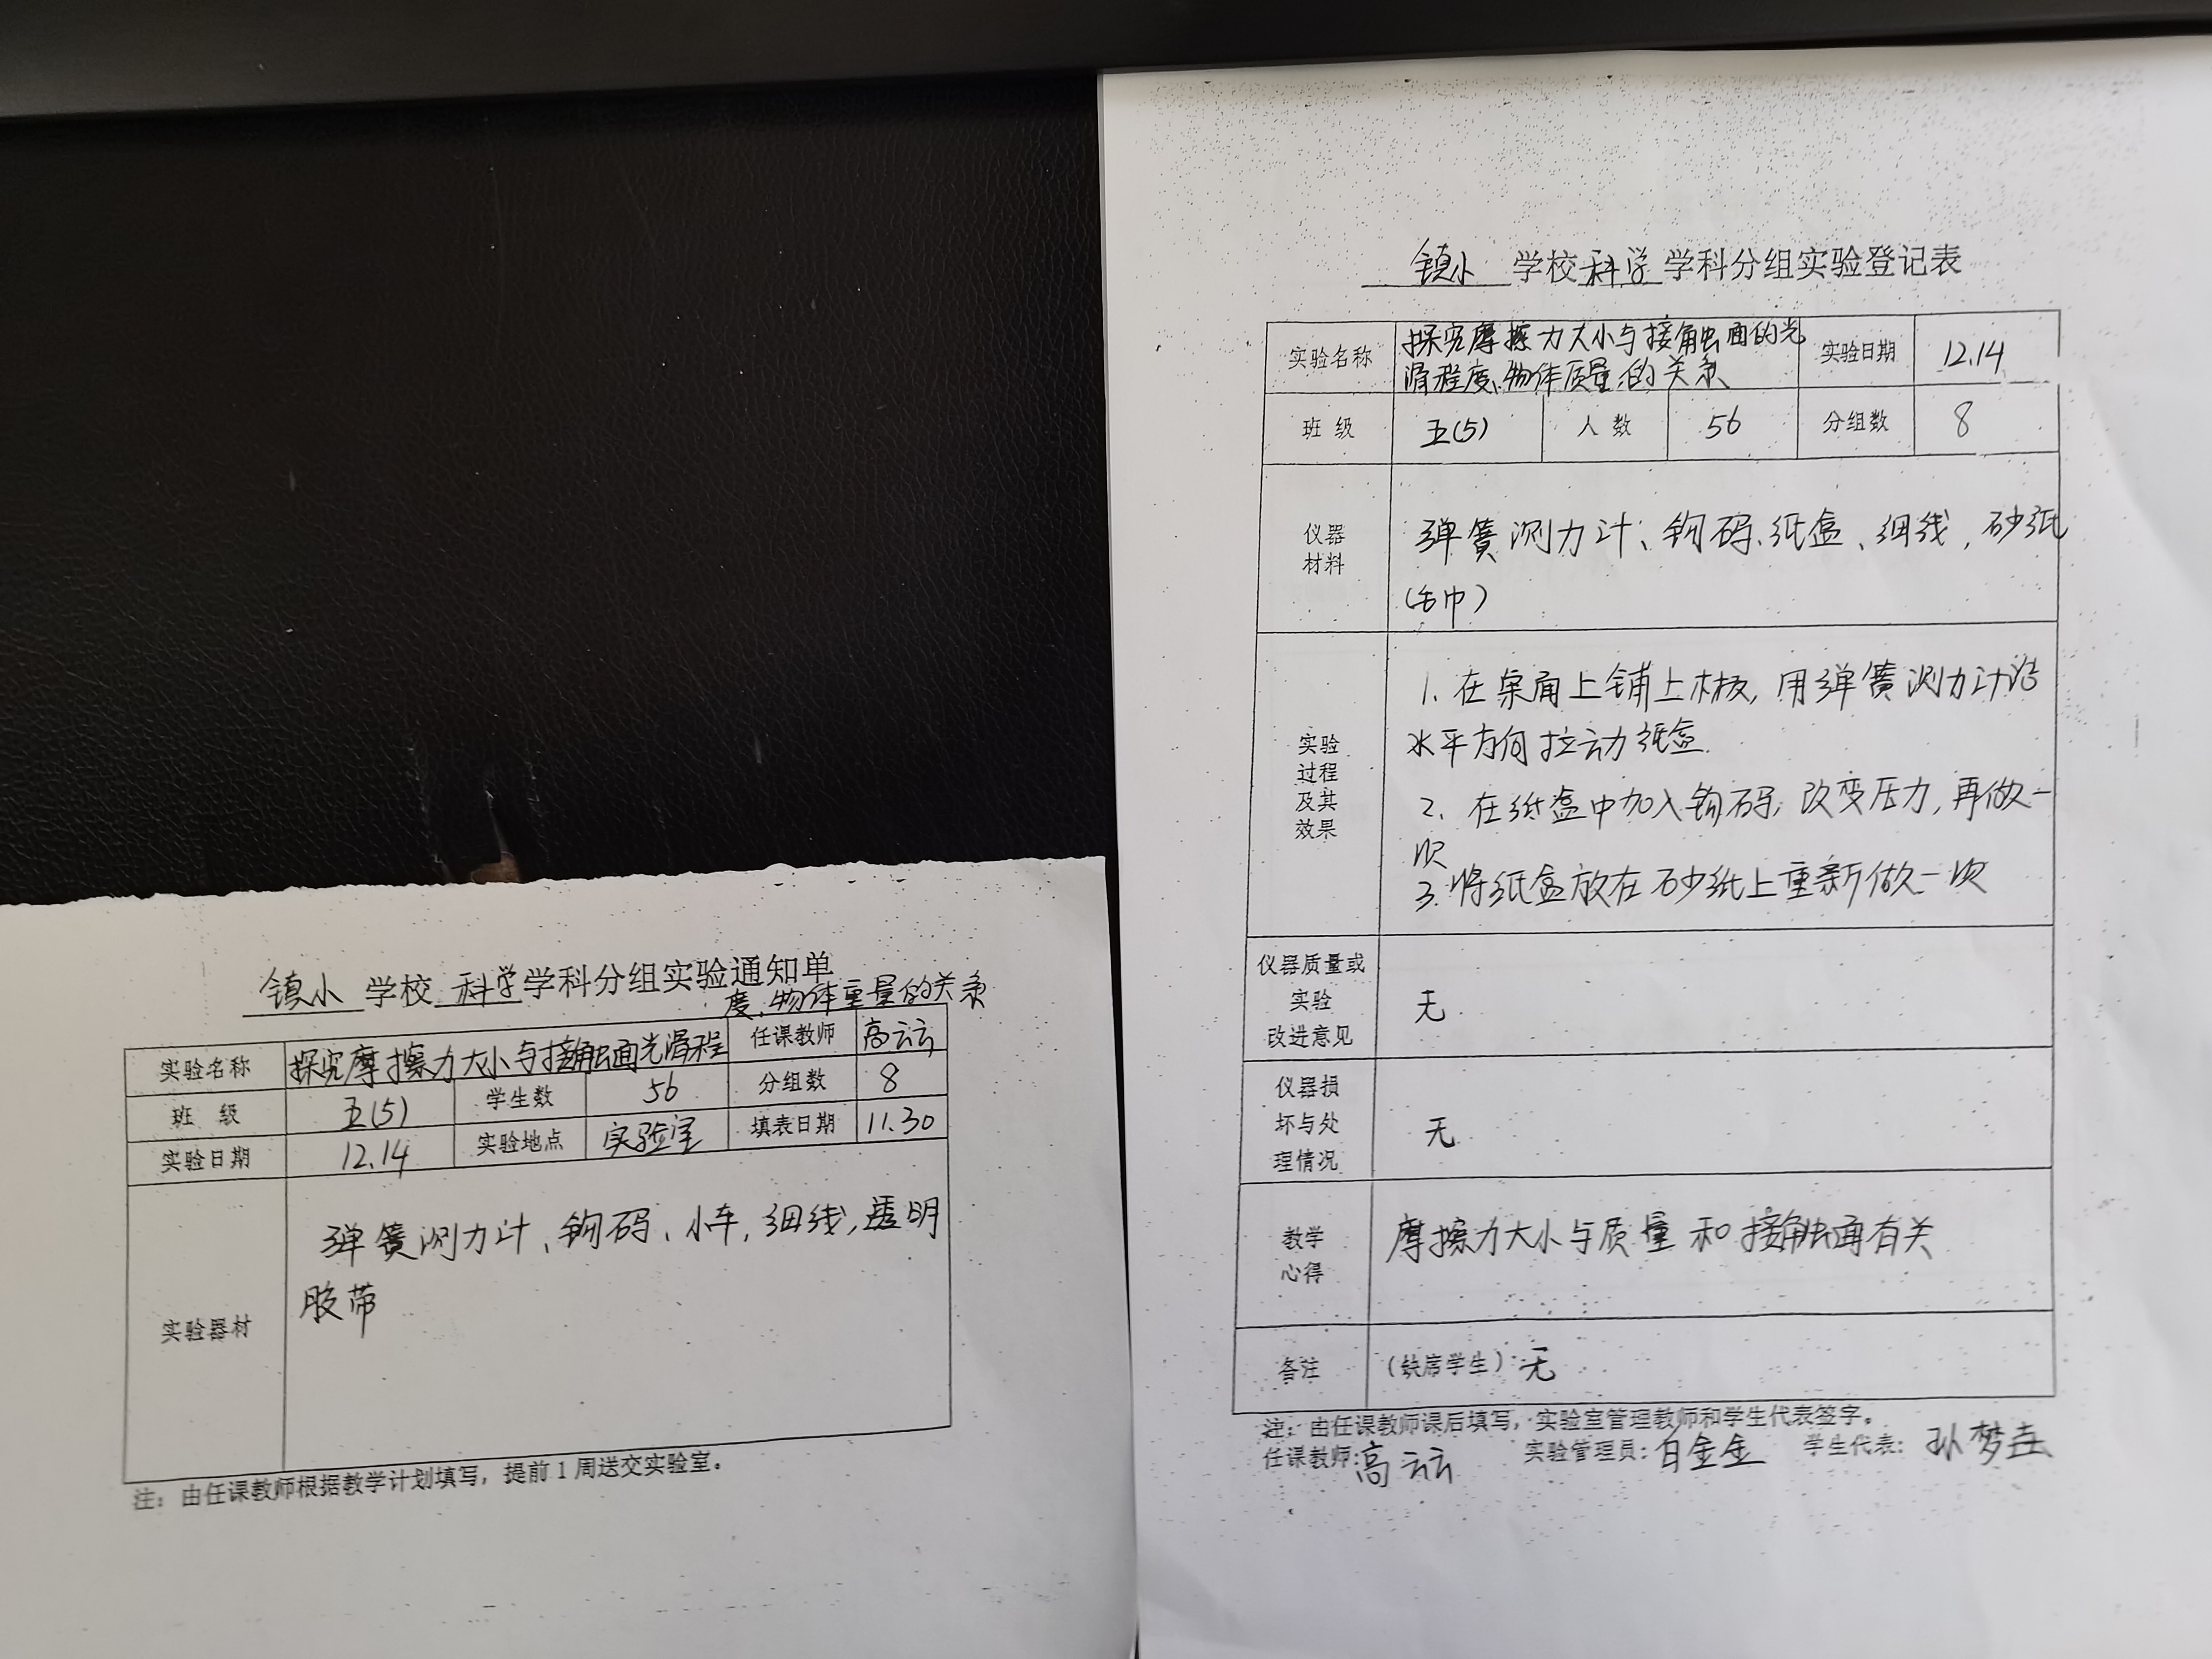 镇小 学校 科学 学科分组实验通知单
度、物体重量的关系
实验名称 探究摩擦力大小与接触面光滑程 任课教师 高云云
班 级 五(5) 学生数 56 分组数 8
实验日期 12.14 实验地点 实验室 填表日期 11.30
实验器材 弹簧测力计、钩码、小车,细线,透明
胶带
注：由任课教师根据教学计划填写，提前1周送交实验室。
镇小 学校 科学 学科分组实验登记表
实验名称 探究摩擦力大小与接触面的光
滑程度、物体质量的关系 实验日期 12.14
班 级 五(5) 人 数 56 分组数 8
仪器
材料
弹簧测力计、钩码、纸盒、细线,砂纸
(毛巾)
实验
过程
及其
效果
1. 在桌面上铺上木板,用弹簧测力计沿
水平方向拉动纸盒.
2. 在纸盒中加入钩码,改变压力,再做一
次
3. 将纸盒放在砂纸上重新做一次
仪器质量或
实验
改进意见
无
仪器损
坏与处
理情况
无
教学
心得
摩擦力大小与质量和接触面有关
备注 （缺席学生）无
注：由任课教师课后填写，实验室管理教师和学生代表签字。
任课教师:高云云 实验管理员:白金金 学生代表: 孙梦